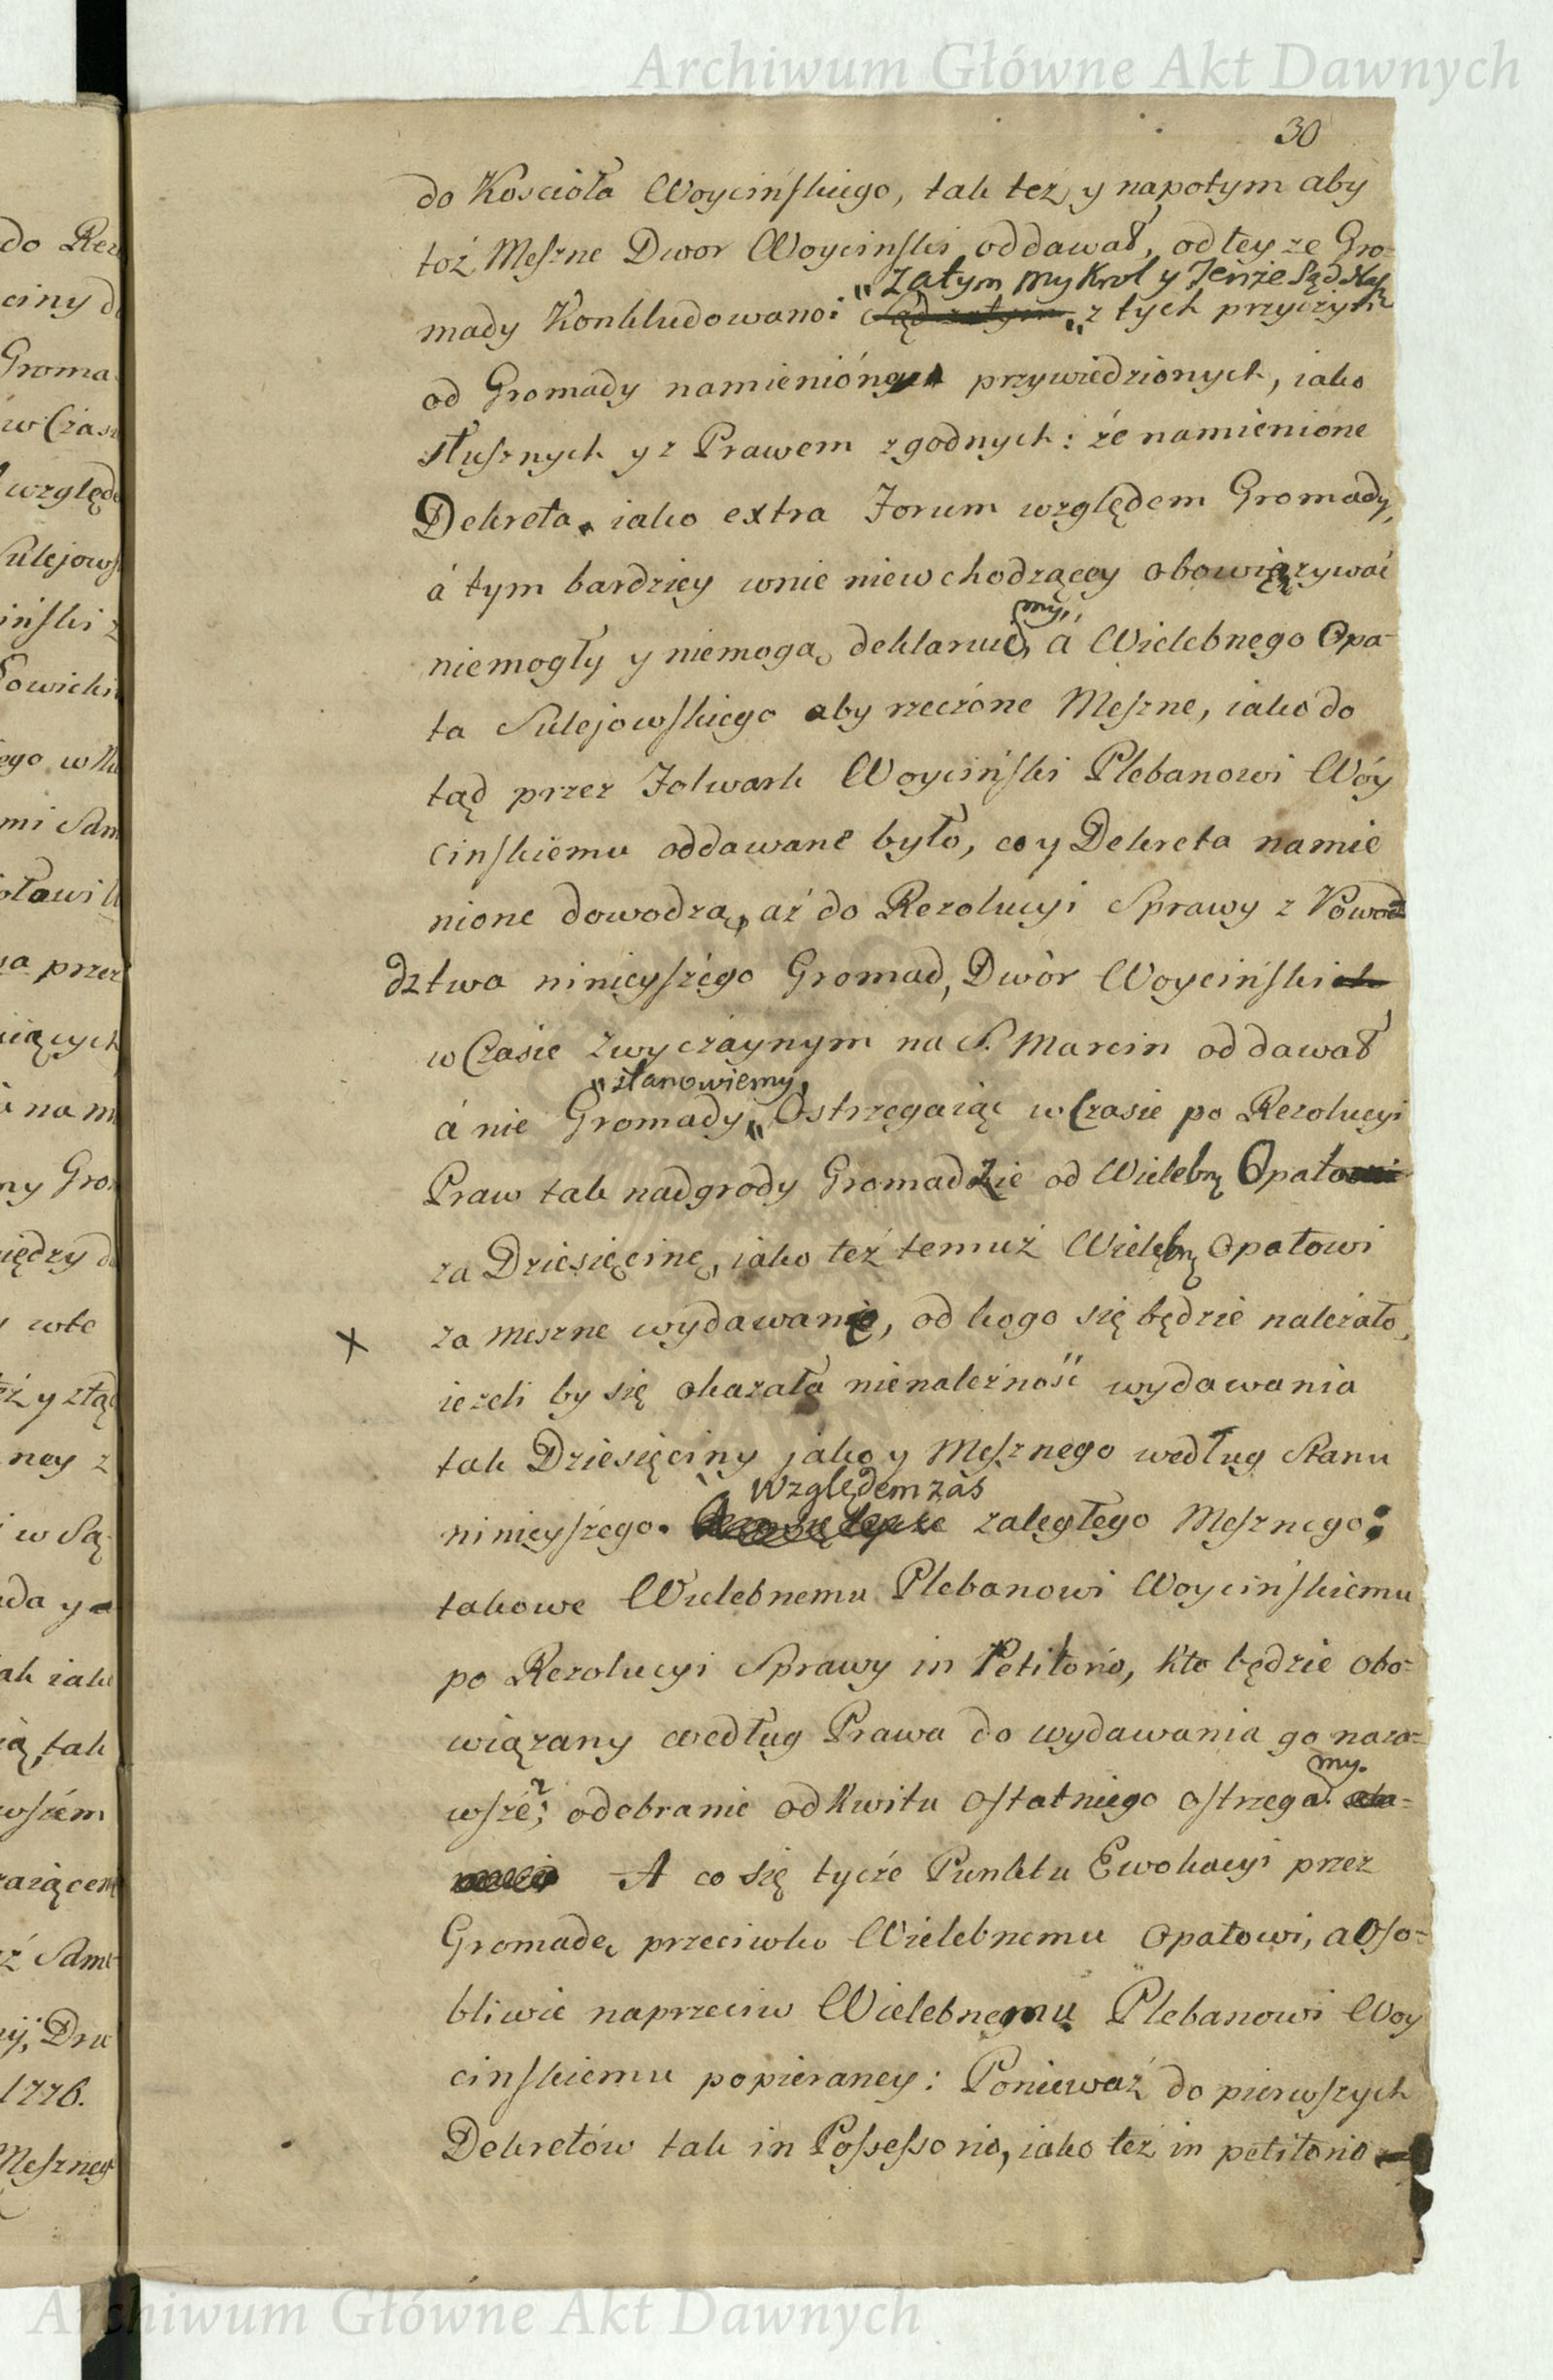 Archiwum Główne Akt Dawnych
30
do Koscioła Woycińskiego, tak też y napotym aby
toż Meszne Dwor Woycinski oddawał, od teyze Gro-
"Zatym my Krol y Jenże Sąd Nasz
mady Konkludowano: Sąd zatym „z tych przyczyn
od Gromady namienióney przywiedzionych, iako
słusznych y z Prawem zgodnych: że namienióne
Dekreta iako extra Forum względem Gromady,
á tym bardziey wnie niewchodzącey obowięzywać
my,
niemogły y niemogą, deklaruie, á Wielebnego Opa-
ta Sulejowskiego aby rzeczóne Meszne, iako do
tąd przez Folwark Woyciński Plebanowi Wóy
cinskiemu oddawane było, co y Dekreta namie
nione dowodzą, aż do Rezolucyi Sprawy z Powod
dztwa ninieyszego Gromad, Dwòr Woyciński
w Czasie zwyczaynym na S. Marcin oddawał
"stanowiemy,
á nie Gromady„ Ostrzegaiąc w Czasie po Rezolucyi
Praw tak nadgrody Gromadzie od Wielebnę Opato
za Dziesięcinę, iako też temuż Wielebnę Opatowi
x za meszne wydawanie, od kogo się będzie należało,
ieżeli by się okazała nienależność wydawania
tak Dziesięciny jako y Mesznego według Stanu
Względem zaś
ninieyszego. zaległego Mesznego:
takowe Wielebnemu Plebanowi Woycińskiemu
po Rezolucyi Sprawy in Petitorio, kto będzie obo-
wiązany według Prawa do wydawania go naza-
my.
wsze; odebranie od Kwitu ostatniego ostrzega
A co się tycże Punktu Ewokacyi przez
Gromadę przeciwko Wielebnemu Opatowi, a Oso-
bliwie naprzeciw Wielebnemu Plebanowi Woy
cinskiemu popieraney: Ponieważ do pierwszych
Dekretów tak in Possessorio, iako też in petitorio
Archiwum Główne Akt Dawnych